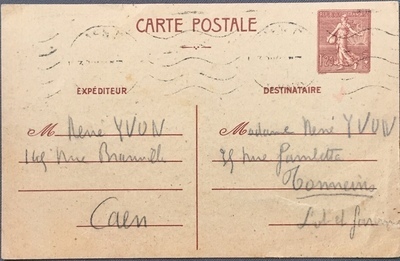 CARTE POSTALE
EXPÉDITEUR
M. René YVON
Caen
DESTINATAIRE
Madame René YVON
35 rue Gambetta
Tonneins
Lot et Garonne